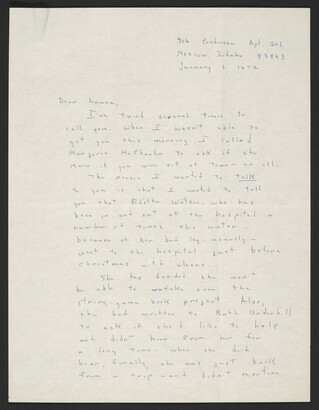 906 Henderson Apt 201
Moscow, Idaho 83843
January 8, 1972
Dear Laura,
I've tried several times to
call you. When I wasn't able to
get you this morning I called
Marjorie to ask if she
knew if you were out of town or ill.
The reason I wanted to talk
to you is that I wanted to tell
you that Edetha Watson who has
been in and out of the hospital a
number of times this winter
because of her bad leg usually -
went to the hospital just before
Christmas with ulcers.
She has decided she won't
be able to undertake even the
string-game book project. Also,
she had written to Ruth Underhill
to ask if she'd like to help
and didn't hear from her for
a long time. When she did
hear, finally, she was just back
from a trip and didn't mention